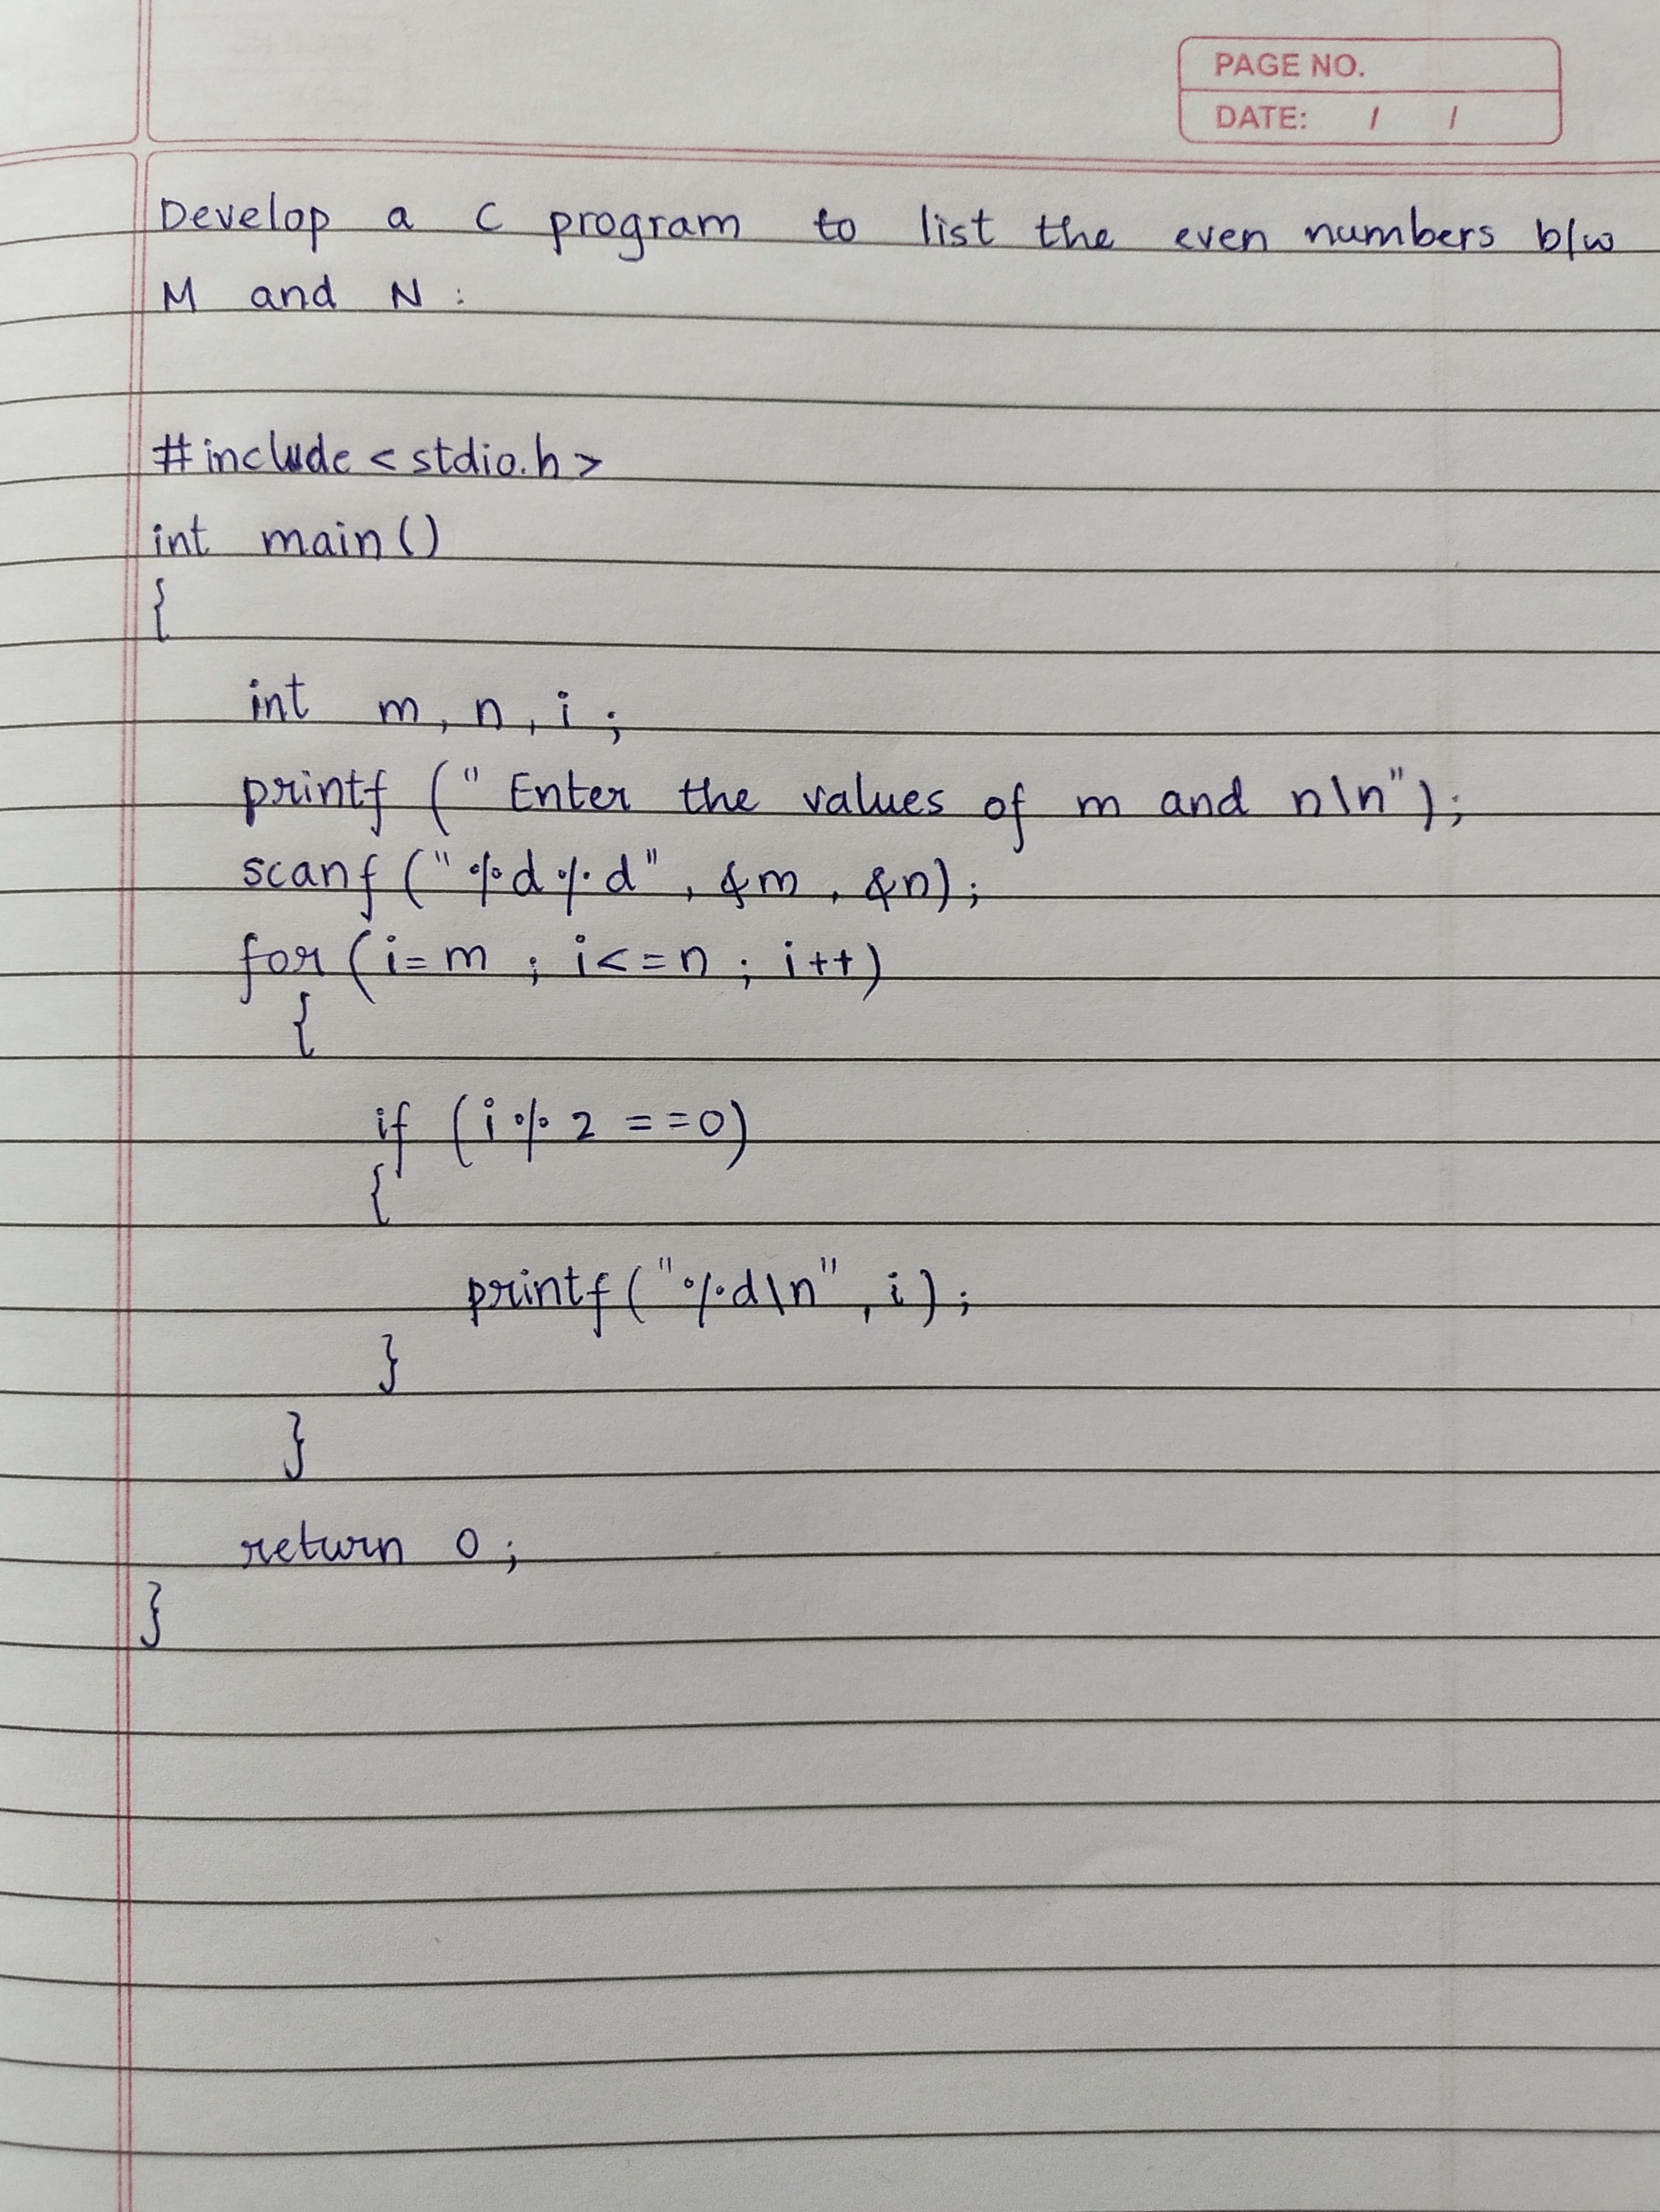 PAGE NO.
DATE: / /
Develop a C program to list the even numbers b/w
M and N :
#include <stdio.h>
int main()
{
int m, n, i ;
printf (" Enter the values of m and n\n");
scanf ("%d%d", &m , &n);
for (i=m ; i<=n ; i++)
{
if (i%2 ==0)
{
printf("%d\n", i);
}
}
return 0;
}